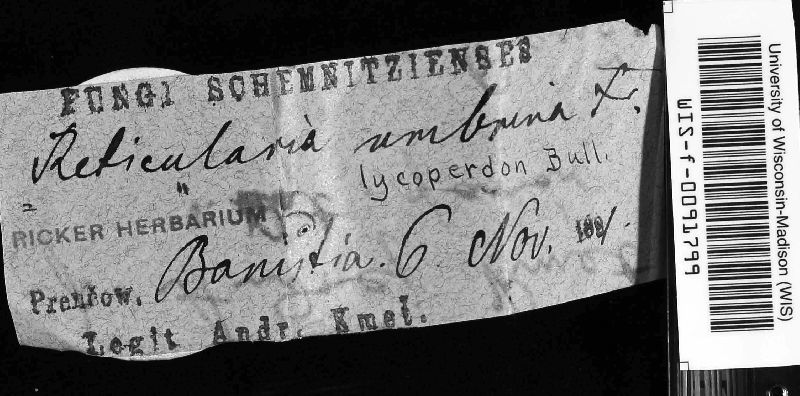 FUNGI SCHEMNITZIENSES
Reticularia umbrina F.
= " lycoperdon Bull.
RICKER HERBARIUM
Banistia. 6 Nov. 188/.
Prenčow.
Legit Andr. Kmeť.
University of Wisconsin-Madison (WIS)
WIS-f-0091799